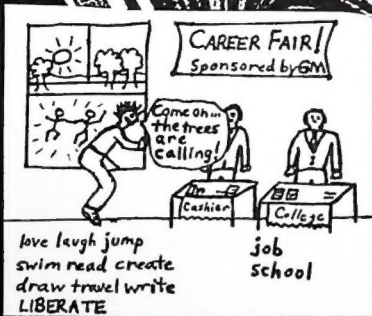 CAREER FAIR!
Sponsored by GM
Come on...
the trees
are
calling!
Cashier
College
love laugh jump
swim read create
draw travel write
LIBERATE
job
school